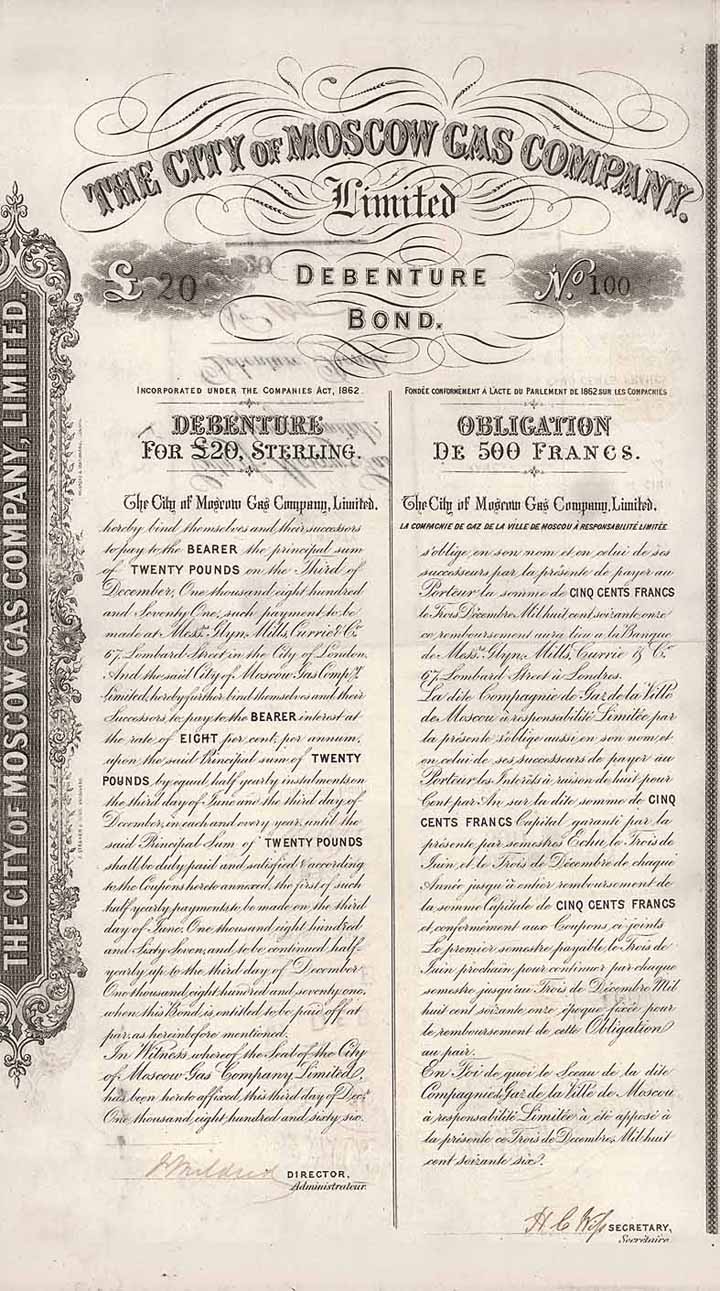 THE CITY OF MOSCOW GAS COMPANY.
Limited
£20
DEBENTURE
BOND.
No. 100
THE CITY OF MOSCOW GAS COMPANY, LIMITED.
INCORPORATED UNDER THE COMPANIES ACT, 1862.
DEBENTURE
FOR £20, STERLING.
The City of Moscow Gas Company, Limited.
hereby bind themselves and their successors
to pay to the BEARER the principal sum
of TWENTY POUNDS on the Third of
December, One thousand eight hundred
and Seventy One, such payment to be
made at Messrs. Glyn, Mills, Currie & Co.
67, Lombard Street, in the City of London.
And the said City of Moscow Gas Compy.
Limited, hereby further bind themselves and their
Successors, to pay to the BEARER interest at
the rate of EIGHT per cent, per annum,
upon the said Principal sum of TWENTY
POUNDS by equal half yearly instalments on
the third day of June and the third day of
December, in each and every year, until the
said Principal Sum of TWENTY POUNDS
shall be duly paid and satisfied & according
to the Coupons hereto annexed, the first of such
half yearly payments to be made on the third
day of June, One thousand eight hundred
and Sixty Seven, and to be continued half
yearly up to the third day of December
One thousand, eight hundred and seventy one,
when this Bond, is entitled to be paid off at
par, as hereinbefore mentioned.
In Witness whereof the Seal of the City
of Moscow Gas Company Limited,
has been hereto affixed, this third day of Decr.
One thousand, eight hundred and sixty six.
DIRECTOR,
Administrateur.
FONDÉE CONFORMÉMENT A L'ACTE DU PARLEMENT DE 1862 SUR LES COMPAGNIES
OBLIGATION
DE 500 FRANCS.
The City of Moscow Gas Company, Limited.
LA COMPAGNIE DE GAZ DE LA VILLE DE MOSCOU À RESPONSABILITÉ LIMITÉE
s'oblige, en son nom et en celui de ses
successeurs par la présente de payer au
Porteur la somme de CINQ CENTS FRANCS
le Trois Décembre Mil huit cent soixante onze
ce remboursement aura lieu a la Banque
de Messrs. Glyn, Mills, Currie & Co.
67, Lombard Street à Londres.
La dite Compagnie de Gaz de la Ville
de Moscou à responsabilité Limitée par
la présente s'oblige aussi en son nom et
en celui de ses successeurs de payer au
Porteur les Intérêts à raison de huit pour
Cent par An sur la dite somme de CINQ
CENTS FRANCS Capital garanti par la
présente par semestres Echu le Trois de
Juin et le Trois de Décembre de chaque
Année jusqu'à entier remboursement de
la somme Capitale de CINQ CENTS FRANCS
et conformément aux Coupons ci-joints
Le premier semestre payable le Trois de
Juin prochain pour continuer par chaque
semestre jusqu'au Trois de Décembre Mil
huit cent soixante onze époque fixée pour
le remboursement de cette Obligation
au pair.
En Foi de quoi le Sceau de la dite
Compagnie de Gaz de la Ville de Moscou
à responsabilité Limitée à été apposé à
la présente ce Trois de Decembre, Mil huit
cent soixante six.
SECRETARY,
Secrétaire